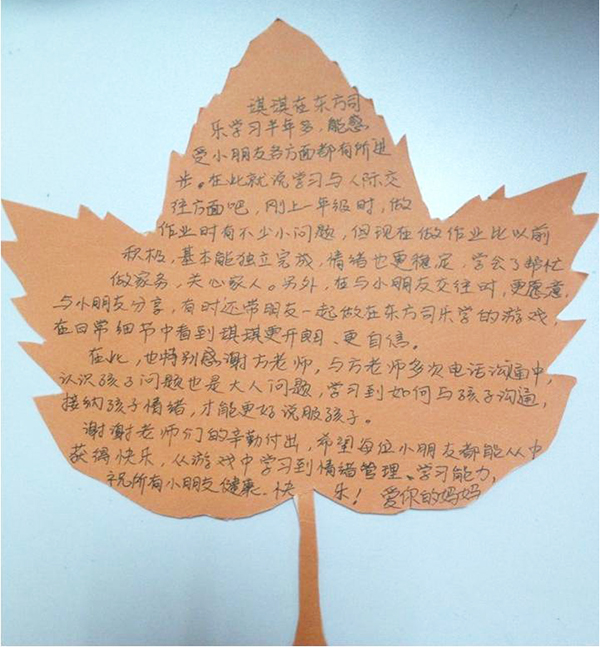 琪琪在东方司
乐学习半年多，能感
受小朋友各方面都有所进
步。在此就说学习与人际交
往方面吧，刚上一年级时，做
作业时有不少小问题，但现在做作业比以前
积极，基本能独立完成，情绪也更稳定，学会了帮忙
做家务，关心家人。另外，在与小朋友交往时，更愿意
与小朋友分享，有时还带朋友一起做在东方司乐学的游戏，
在日常细节中看到琪琪更开朗、更自信。
在此，也特别感谢方老师，与方老师多次电话沟通中，
认识孩子问题也是大人问题，学习到如何与孩子沟通，
接纳孩子情绪，才能更好说服孩子。
谢谢老师们的辛勤付出，希望每位小朋友都能从中
获得快乐，从游戏中学习到情绪管理、学习能力，
祝所有小朋友健康、快乐！ 爱你的妈妈